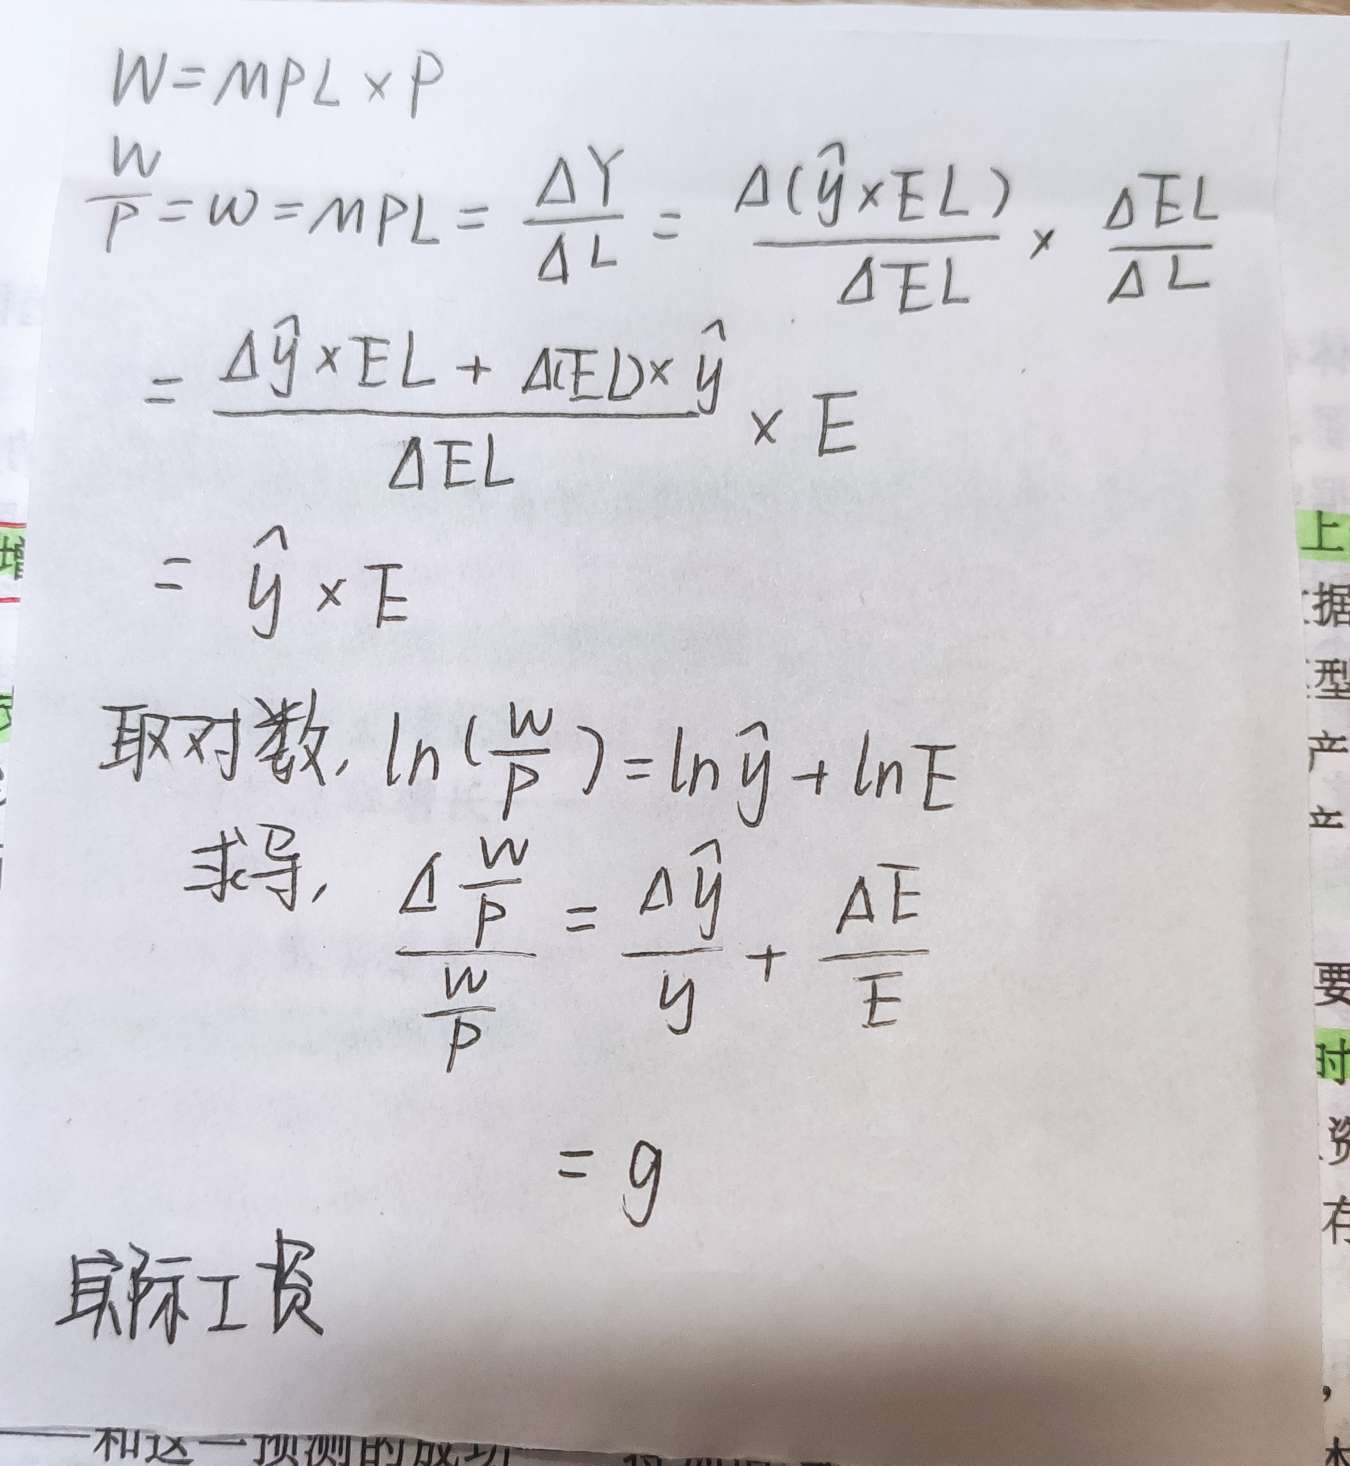 W=MPL×P
W/P=w=MPL=ΔY/ΔL=Δ(ŷ×EL)/ΔEL×ΔEL/ΔL
=(Δŷ×EL+Δ(EL)×ŷ)/ΔEL×E
=ŷ×E
取对数,ln(W/P)=lnŷ+lnE
求导,(ΔW/P)/(W/P)=Δŷ/y+ΔE/E
=g
实际工资
增
上
据
型
产
产
要
时
资
存
,
和这一预测的成功